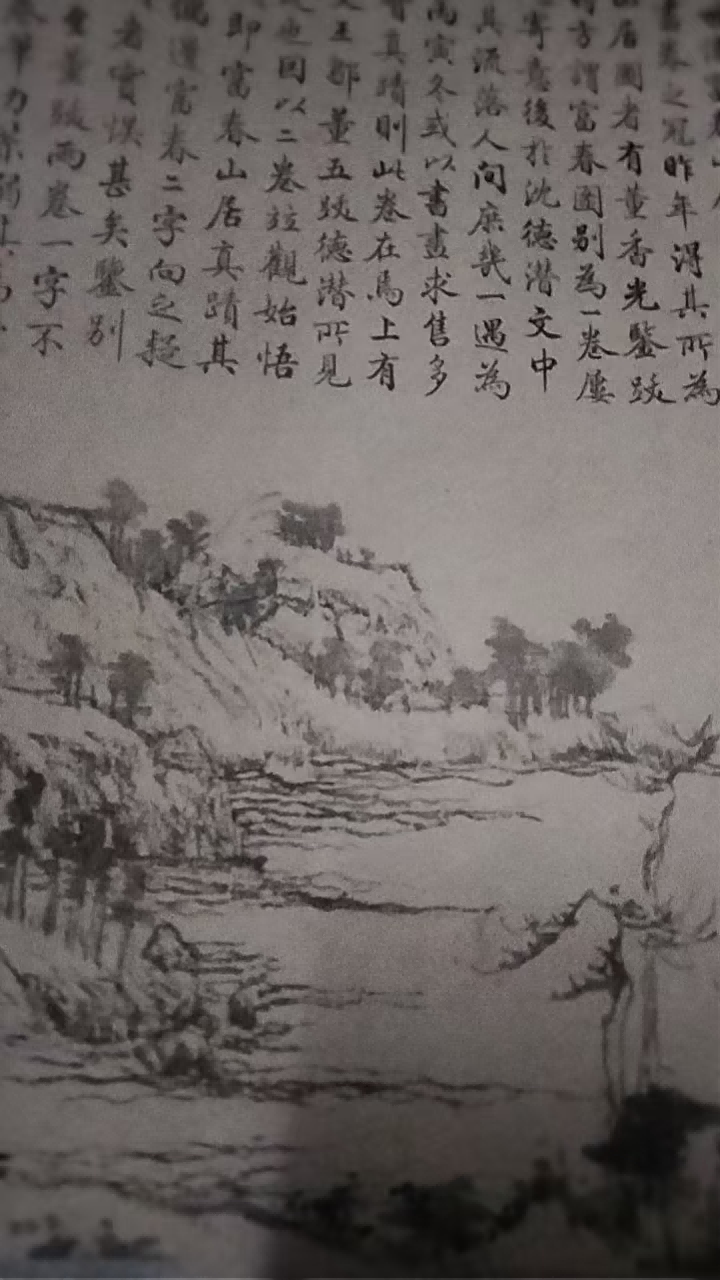 畫卷之冠昨年得其所為
居圖者有董香光鑒跋
方謂富春圖別為一卷屢
寄意後於沈德潛文中
其流落人間庶幾一遇為
丙寅冬或以書畫求售多
真蹟則此卷在焉上有
王鄒董五跋德潛所見
也因以二卷竝觀始悟
即富春山居真蹟其
邊富春二字向之疑
者實悞甚矣鑒別
董跋兩卷一字不
力苶弱其為